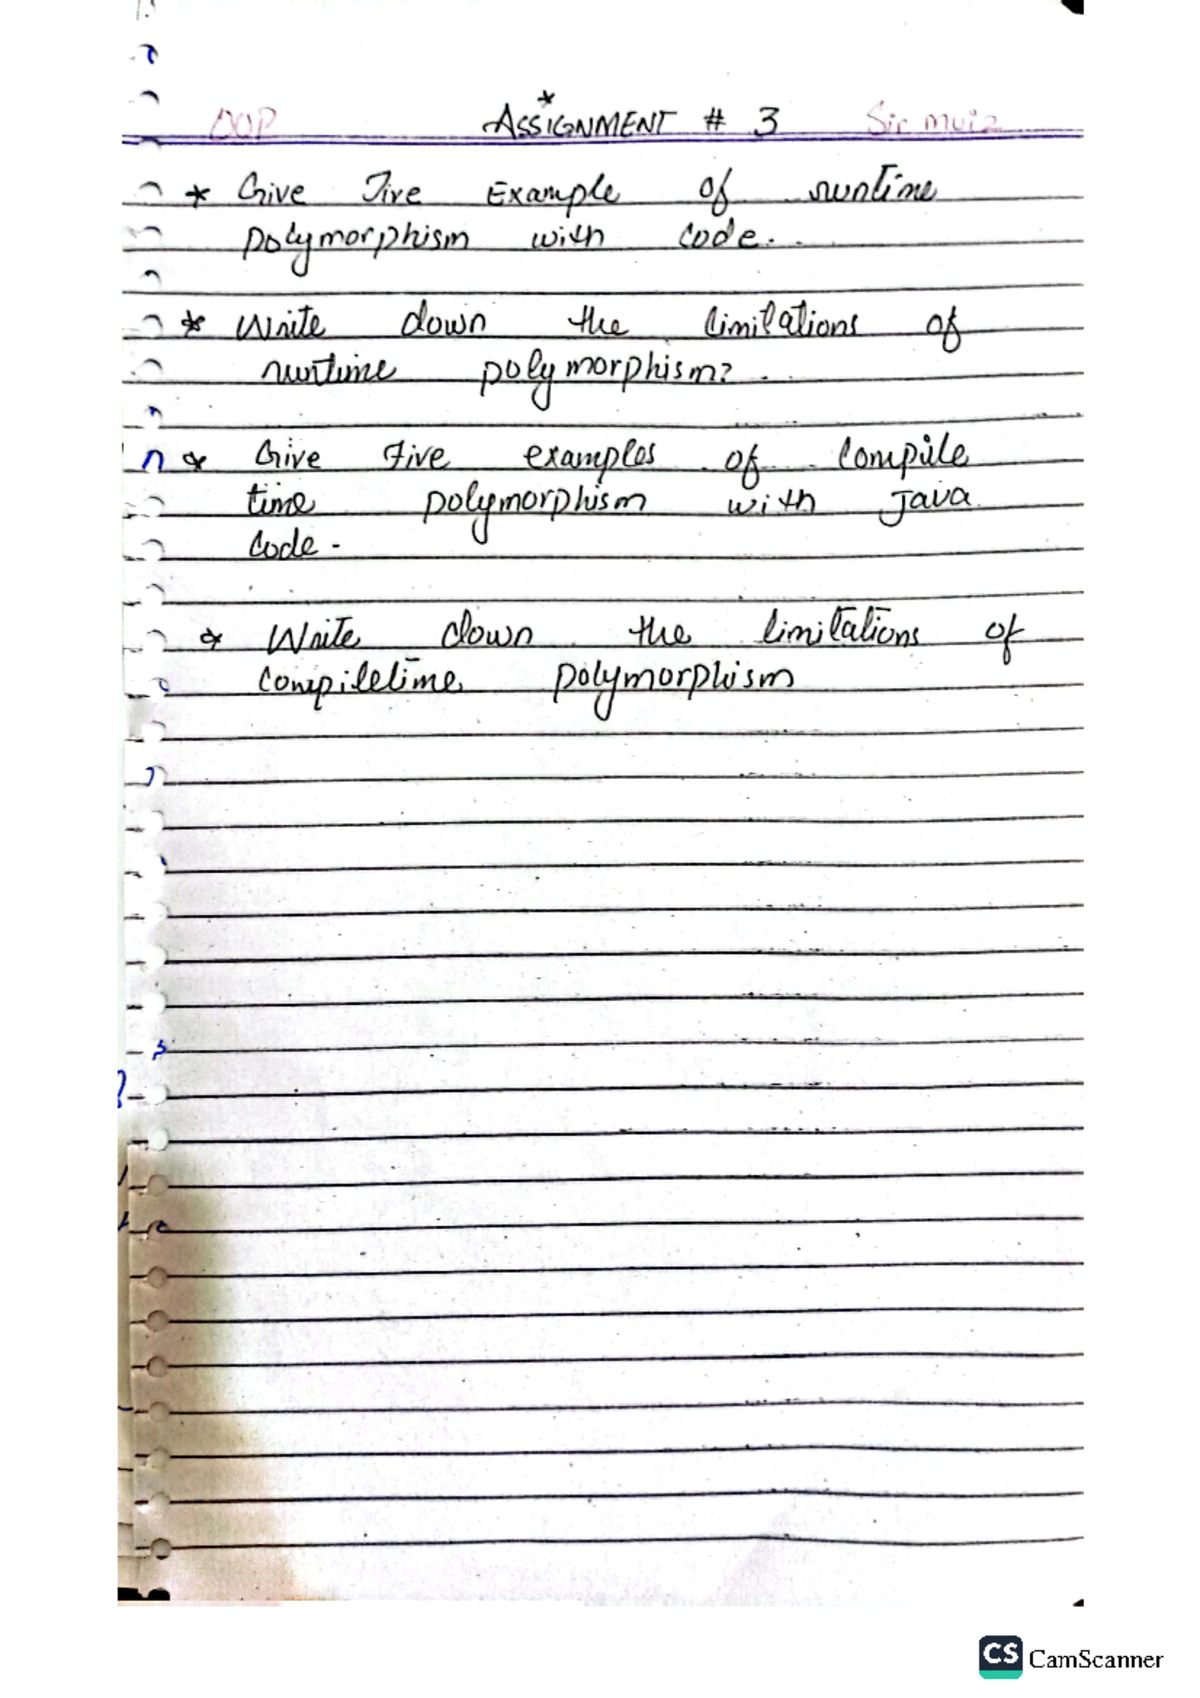 OOP ASSIGNMENT # 3 Sir muiz
* Give Five Example of runtime
polymorphism with code.
* Write down the limitations of
runtime polymorphism?
* Give Five examples of Compile
time polymorphism with Java
Code.
* Write down the limitations of
compiletime polymorphism
CS CamScanner